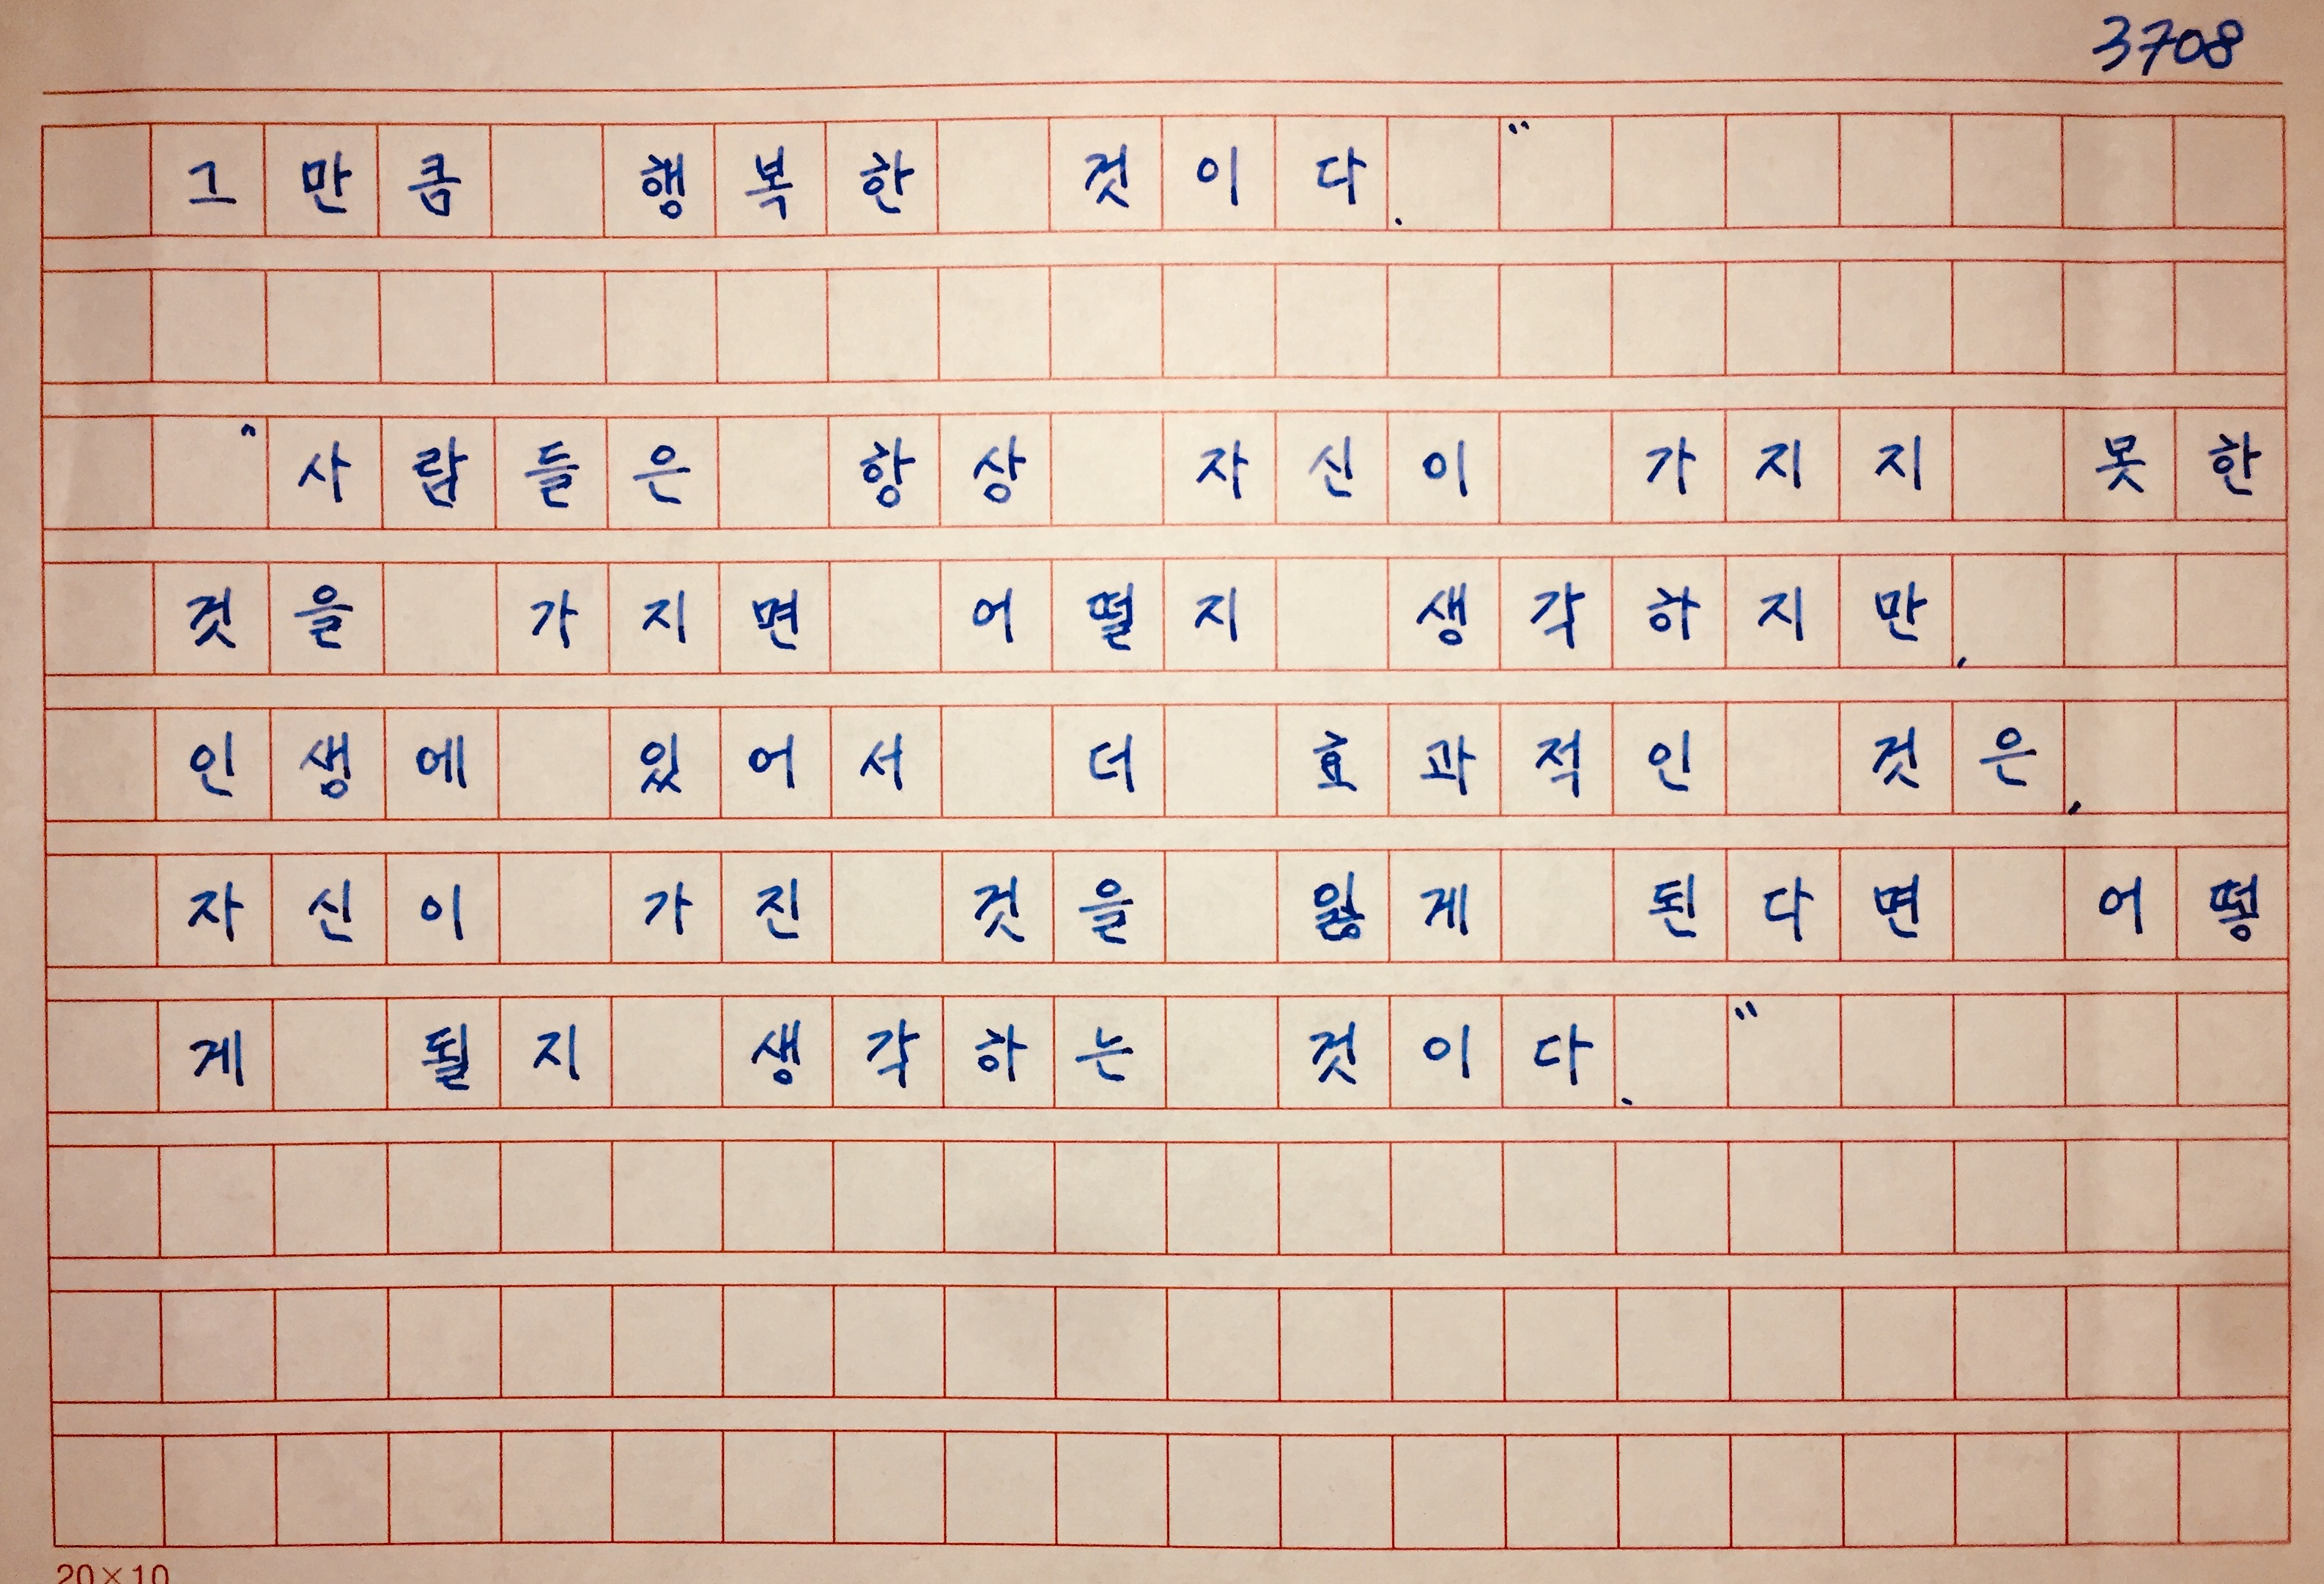 3708
그만큼 행복한 것이다. "
"사람들은 항상 자신이 가지지 못한
것을 가지면 어떨지 생각하지만,
인생에 있어서 더 효과적인 것은,
자신이 가진 것을 잃게 된다면 어떻
게 될지 생각하는 것이다. "
20×10